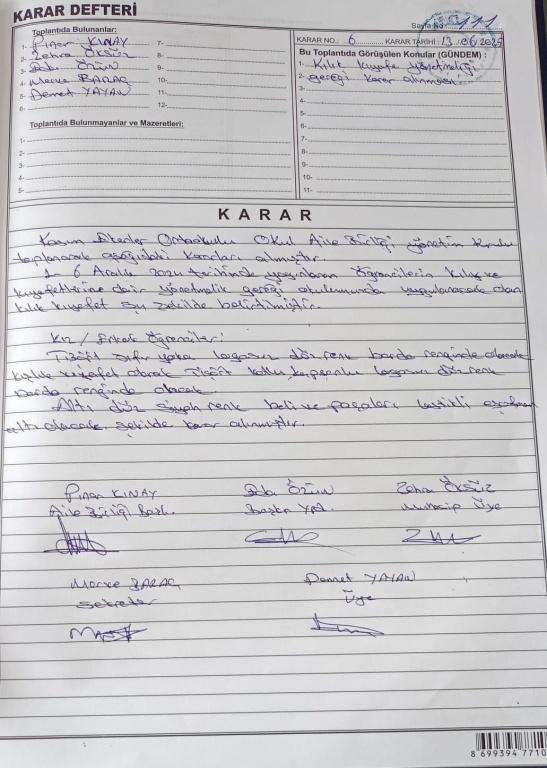 KARAR DEFTERİ
Sayfa No: 111
Toplantıda Bulunanlar:
1- Pınar KINAY
2- Zehra ÖKSÜZ
3- ÖZÜN
4- Merve BARAÇ
5- Demet YAYAN
6-
7-
8-
9-
10-
11-
12-
KARAR NO.: 6 KARAR TARİHİ: 13.06.2025
Bu Toplantıda Görüşülen Konular (GÜNDEM) :
1- Kılık kıyafet yönetmeliği
2- gereği karar alınması
3-
4-
5-
6-
7-
8-
9-
10-
11-
Toplantıda Bulunmayanlar ve Mazeretleri:
1-
2-
3-
4-
5-
KARAR
Ortaokulu Okul Aile Birliği yönetim kurulu
toplanarak aşağıdaki kararları almıştır.
1- 6 Aralık 2024 tarihinde yayınlanan öğrencilerin kılık ve
kıyafetlerine dair yönetmelik gereği okulumuzda uygulanacak olan
kılık kıyafet şu şekilde belirtilmiştir.
Kız / Erkek Öğrenciler:
Tişört sıfır yaka logosuz düz renk bordo renginde olacak
kışlık kıyafet olarak logosuz düz renk
bordo renginde olacak.
Altı düz siyah renk beli ve paçaları lastikli eşofman
altı olacak şekilde karar alınmıştır.
Pınar KINAY
Aile Birliği Başk.
ÖZÜN
Başkan Yrd.
Zehra ÖKSÜZ
Muhasip Üye
Merve BARAÇ
Sekreter
Demet YAYAN
Üye
8 699394 7710